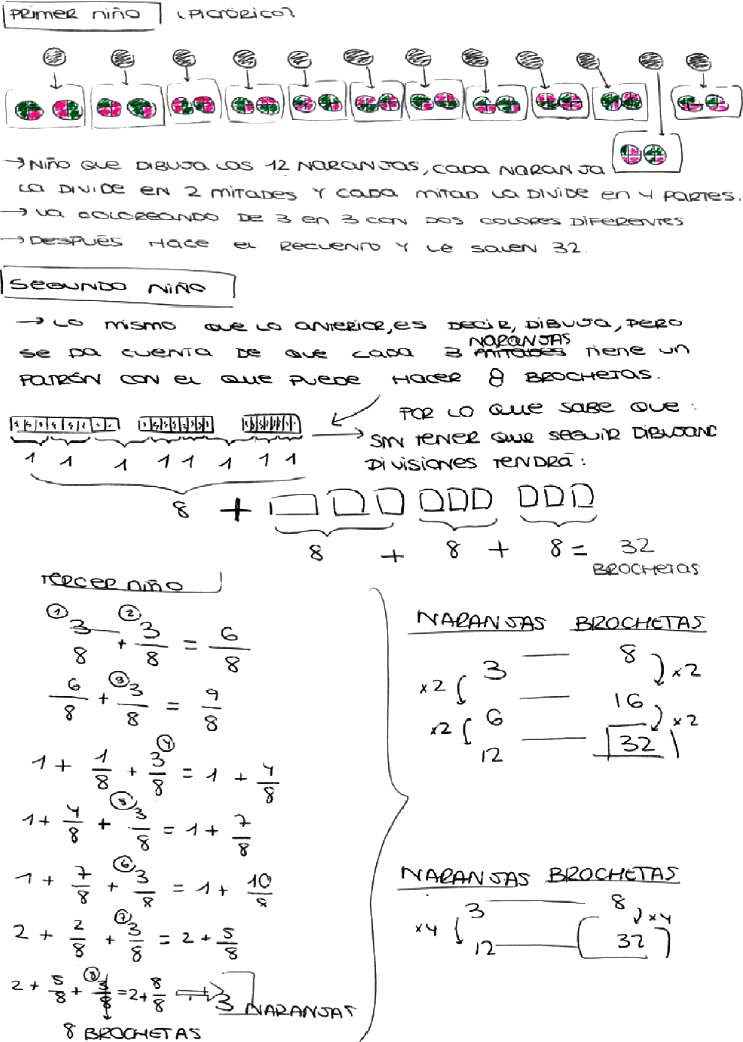 PRIMER NIÑO (PICTÓRICO)
→ NIÑO QUE DIBUJA LAS 12 NARANJAS, CADA NARANJA
LA DIVIDE EN 2 MITADES Y CADA MITAD LA DIVIDE EN 4 PARTES.
→ VA COLOREANDO DE 3 EN 3 CON DOS COLORES DIFERENTES
→ DESPUÉS HACE EL RECUENTO Y LE SALEN 32.
SEGUNDO NIÑO
→ LO MISMO QUE LO ANTERIOR, ES DECIR, DIBUJA, PERO
NARANJAS
SE DA CUENTA DE QUE CADA 3 MITADES TIENE UN
PATRÓN CON EL QUE PUEDE HACER 8 BROCHETAS.
POR LO QUE SABE QUE:
SIN TENER QUE SEGUIR DIBUJAND
DIVISIONES TENDRÁ:
1 1 1 1 1 1 1 1
8 +
8 + 8 + 8 = 32
BROCHETAS
TERCER NIÑO
① 3/8 + ② 3/8 = 6/8
6/8 + ③ 3/8 = 9/8
1 + 1/8 + ④ 3/8 = 1 + 4/8
1 + 4/8 + ⑤ 3/8 = 1 + 7/8
1 + 7/8 + ⑥ 3/8 = 1 + 10/8
2 + 2/8 + ⑦ 3/8 = 2 + 5/8
2 + 5/8 + ⑧ 3/8 = 2 + 8/8 ⇒ 3 NARANJAS
8 BROCHETAS
NARANJAS BROCHETAS
3 — 8
x2 x2
6 — 16
x2 x2
12 — 32
NARANJAS BROCHETAS
3 — 8
x4 x4
12 — 32